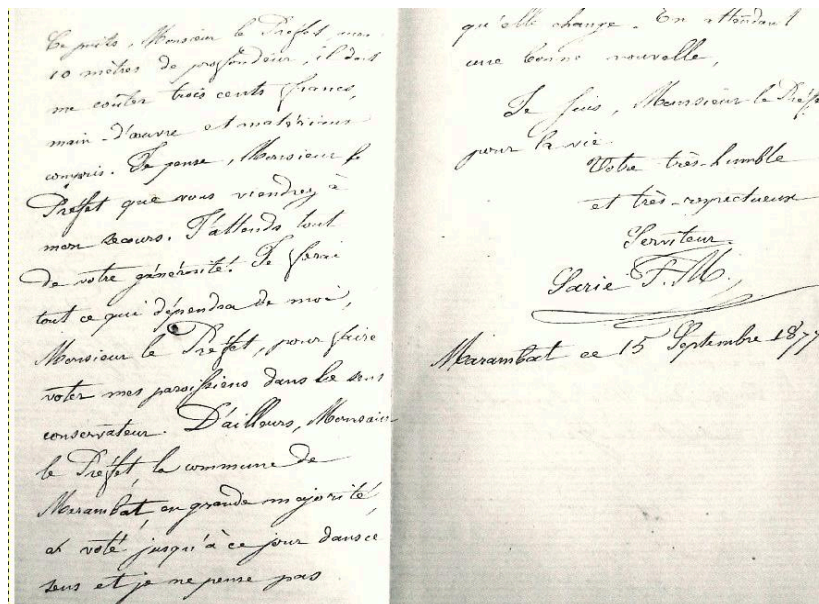 Ce puits, Monsieur le Préfet, aura
10 mètres de profondeur, il doit
me coûter trois cents francs,
main-d'œuvre et matériaux
compris. Je pense, Monsieur le
Préfet que vous viendrez à
mon secours. J'attends tout
de votre générosité. Je ferai
tout ce qui dépendra de moi,
Monsieur le Préfet, pour faire
voter mes paroissiens dans le sens
conservateur. D'ailleurs, Monsieur
le Préfet, la commune de
Marambat, en grande majorité,
a voté jusqu'à ce jour dans ce
sens et je ne pense pas
qu'elle change. En attendant
une bonne nouvelle,
Je suis, Monsieur le Préf
pour la vie.
Votre très-humble
et très-respectueux
Serviteur.
Sarie F. M.
Marambat ce 15 Septembre 1877